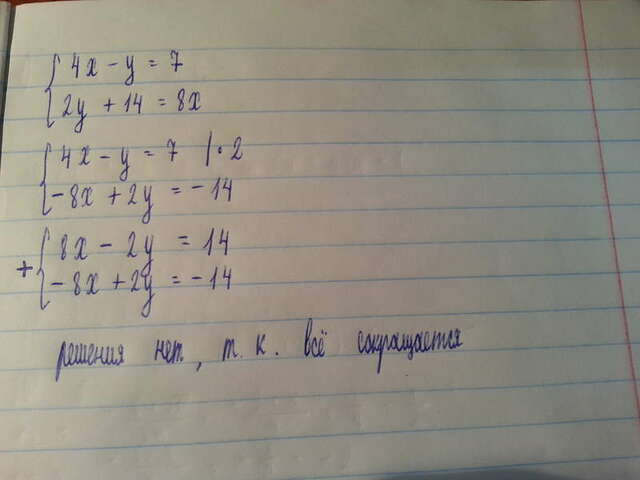 4x - y = 7
2y + 14 = 8x
4x - y = 7 | · 2
-8x + 2y = -14
+ 8x - 2y = 14
-8x + 2y = -14
решения нет, т. к. всё сокращается